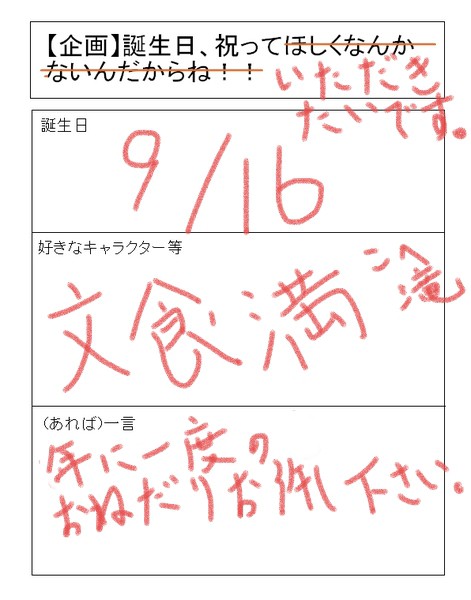 【企画】誕生日、祝ってほしくなんか
ないんだからね！！
いただき
たいです。
誕生日
9/16
好きなキャラクター等
文食満
こへ滝
(あれば)一言
年に一度の
おねだりお許し下さい。